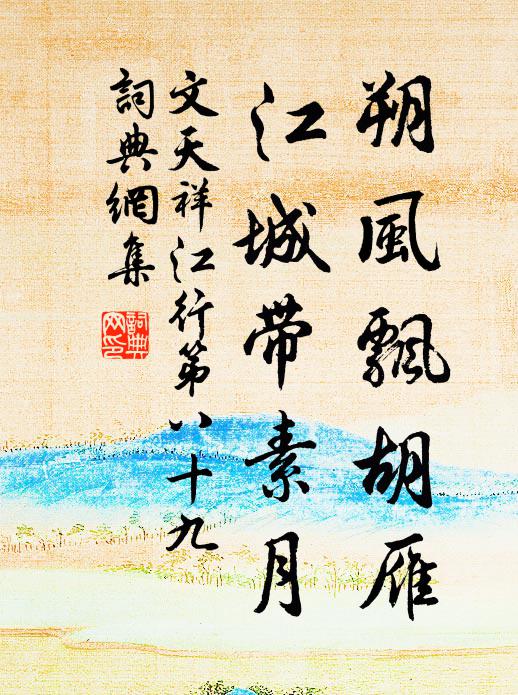 朔風飄胡雁
江城带素月
文天祥江行第八十九
詞典網集
詞典網印